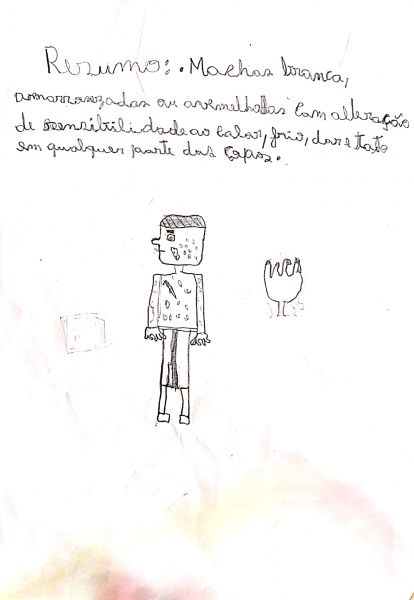 Resumo: . Machas branca,
amarronzadas ou avermelhadas com alteração
de sensibilidade ao calor, frio, dor e tato
em qualquer parte das